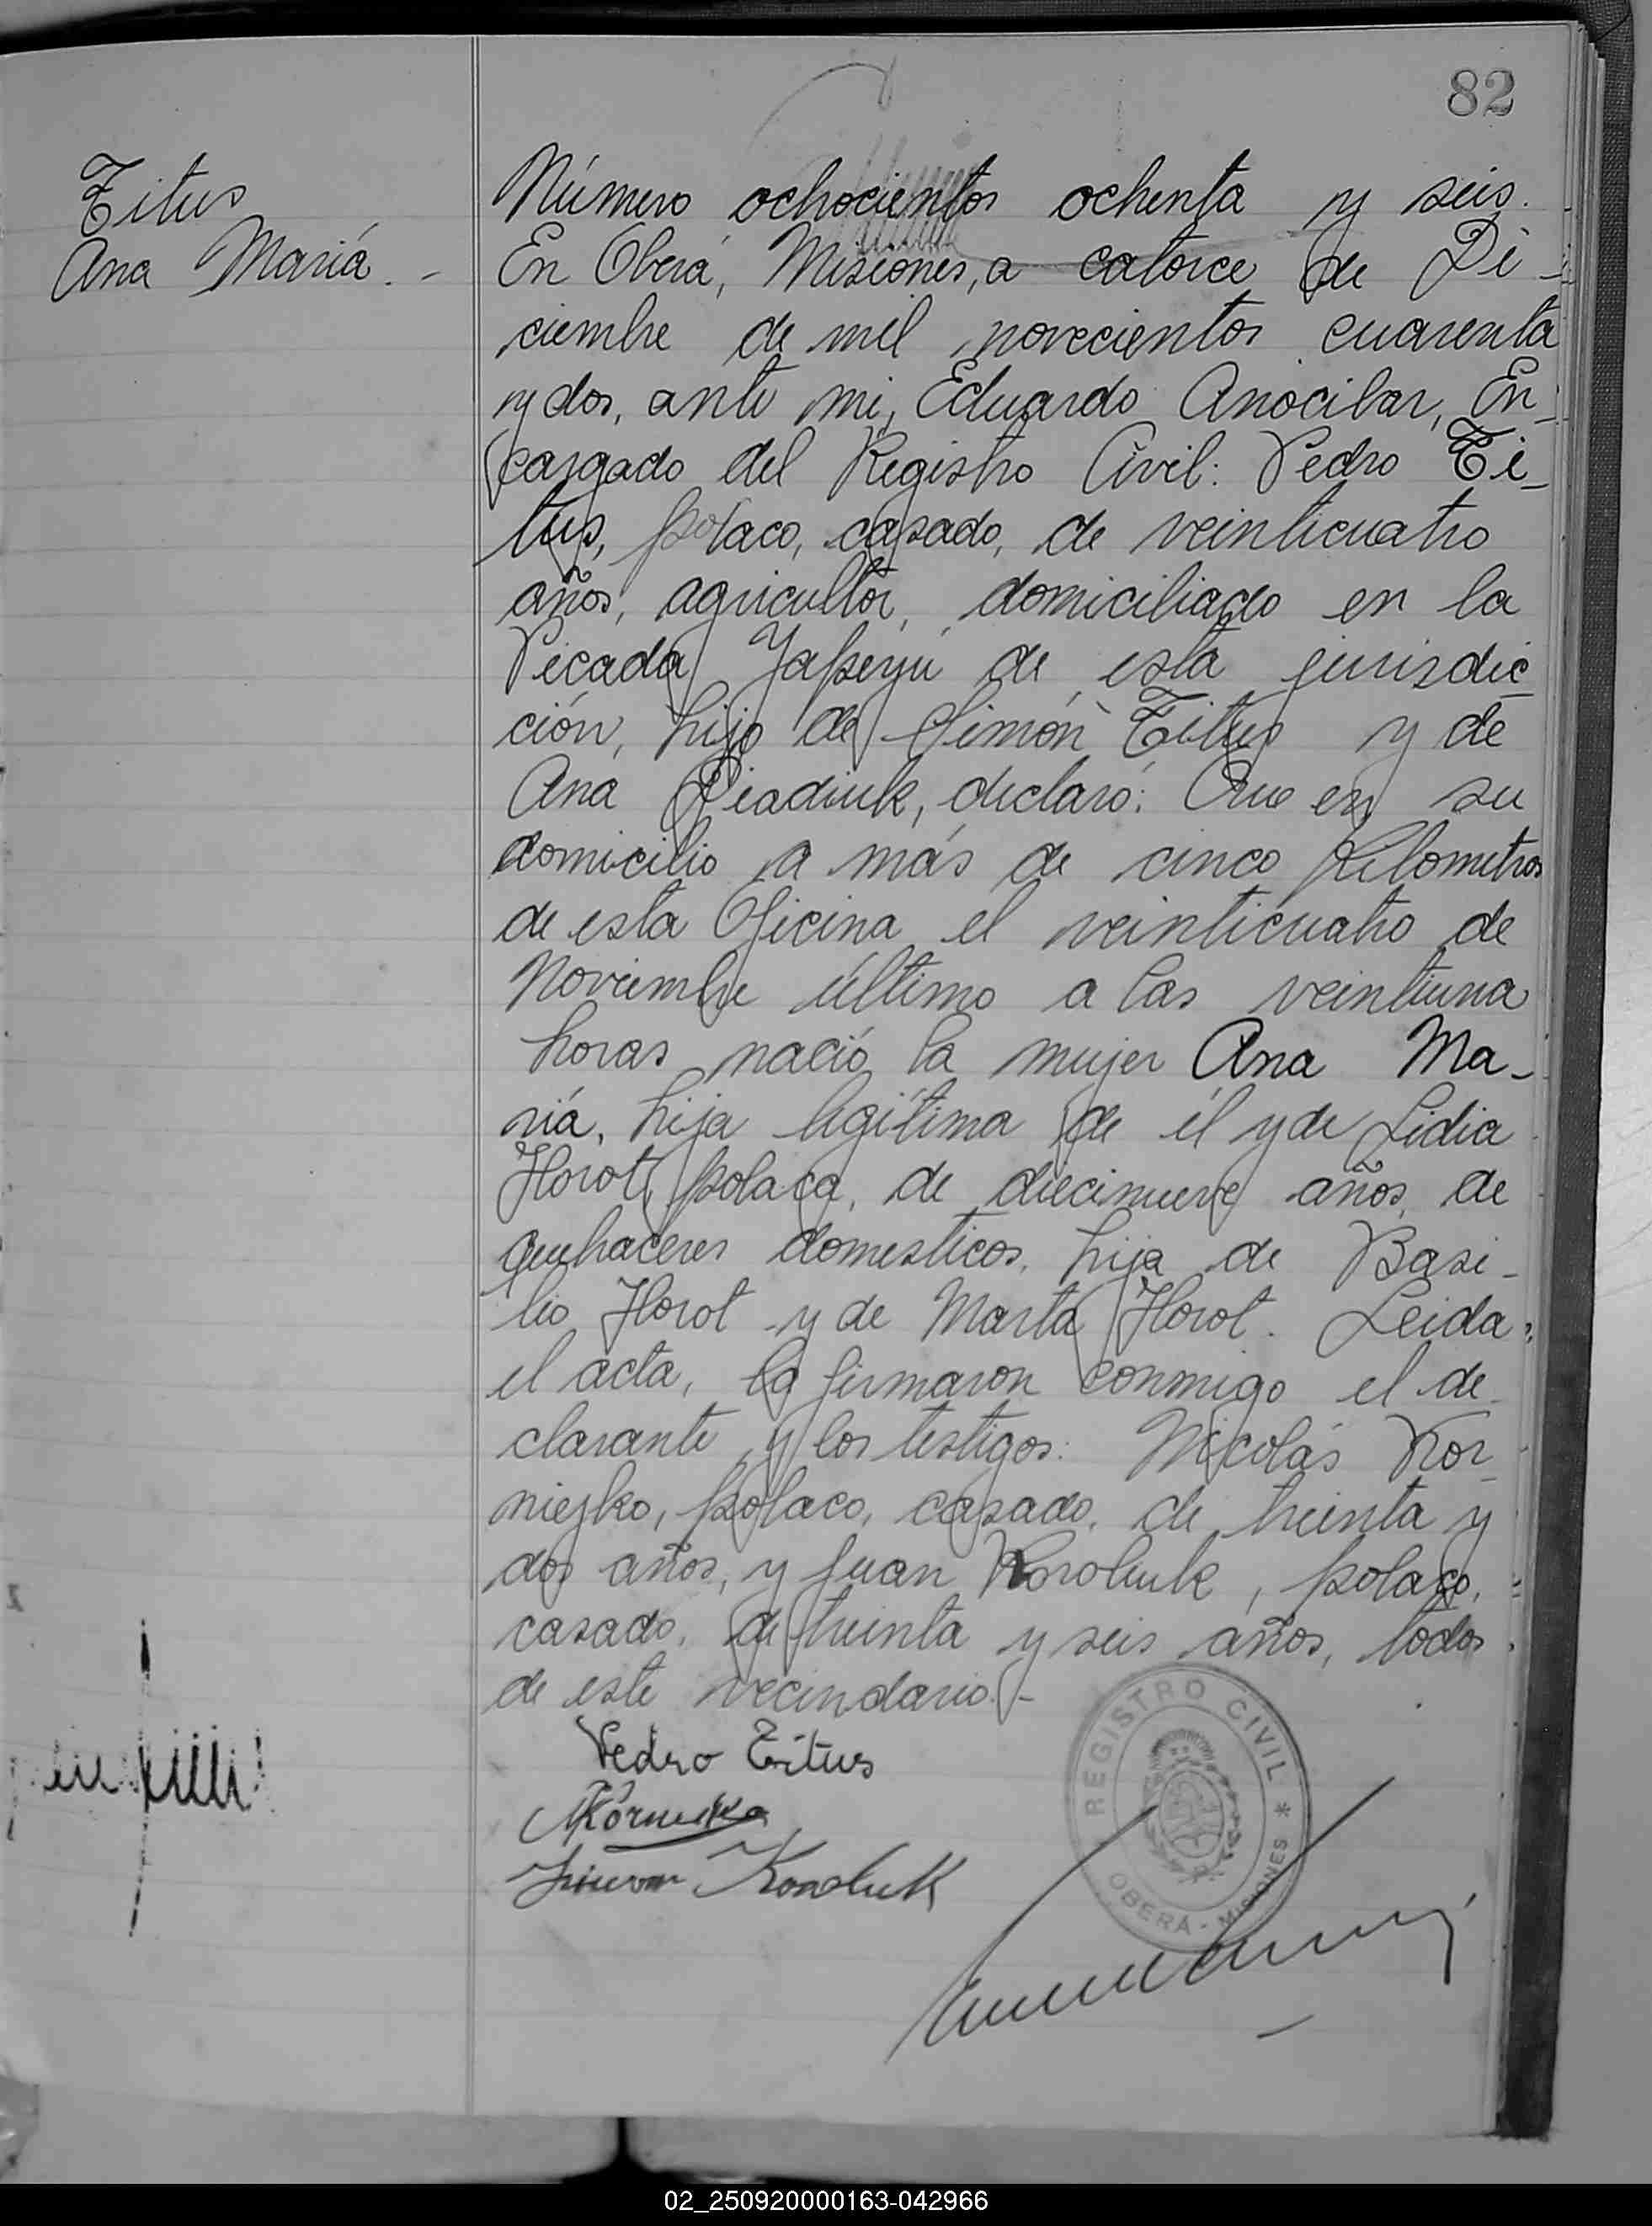 82
Titus
Ana María. -
Número ochocientos ochenta y seis.
En Oberá, Misiones, a catorce de Di-
ciembre de mil novecientos cuarenta
y dos, ante mi, Eduardo Anocibar, En-
cargado del Registro Civil: Pedro Ti-
tus, polaco, casado, de veinticuatro
años, agricultor, domiciliado en la
Picada Yapeyú de esta jurisdic-
ción, hijo de Simón Titus y de
Ana, declaró: Que en su
domicilio a más de cinco kilometros
de esta Oficina el veinticuatro de
Noviembre último a las veintiuna
horas nació la mujer Ana Ma-
ria, hija legítima de él y de Lidia
Horot, polaca, de diecinueve años, de
quehaceres domesticos, hija de Basi-
lio Horot y de Marta Horot. Leida
el acta, la firmaron conmigo el de-
clarante y los testigos: Nicolás Kor-
niejko, polaco, casado, de treinta y
dos años, y Juan Koroluk, polaco,
casado, de treinta y seis años, todos
de este vecindario. -
Pedro Titus
Koroluk
REGISTRO CIVIL *
OBERÁ - MISIONES
02_250920000163-042966